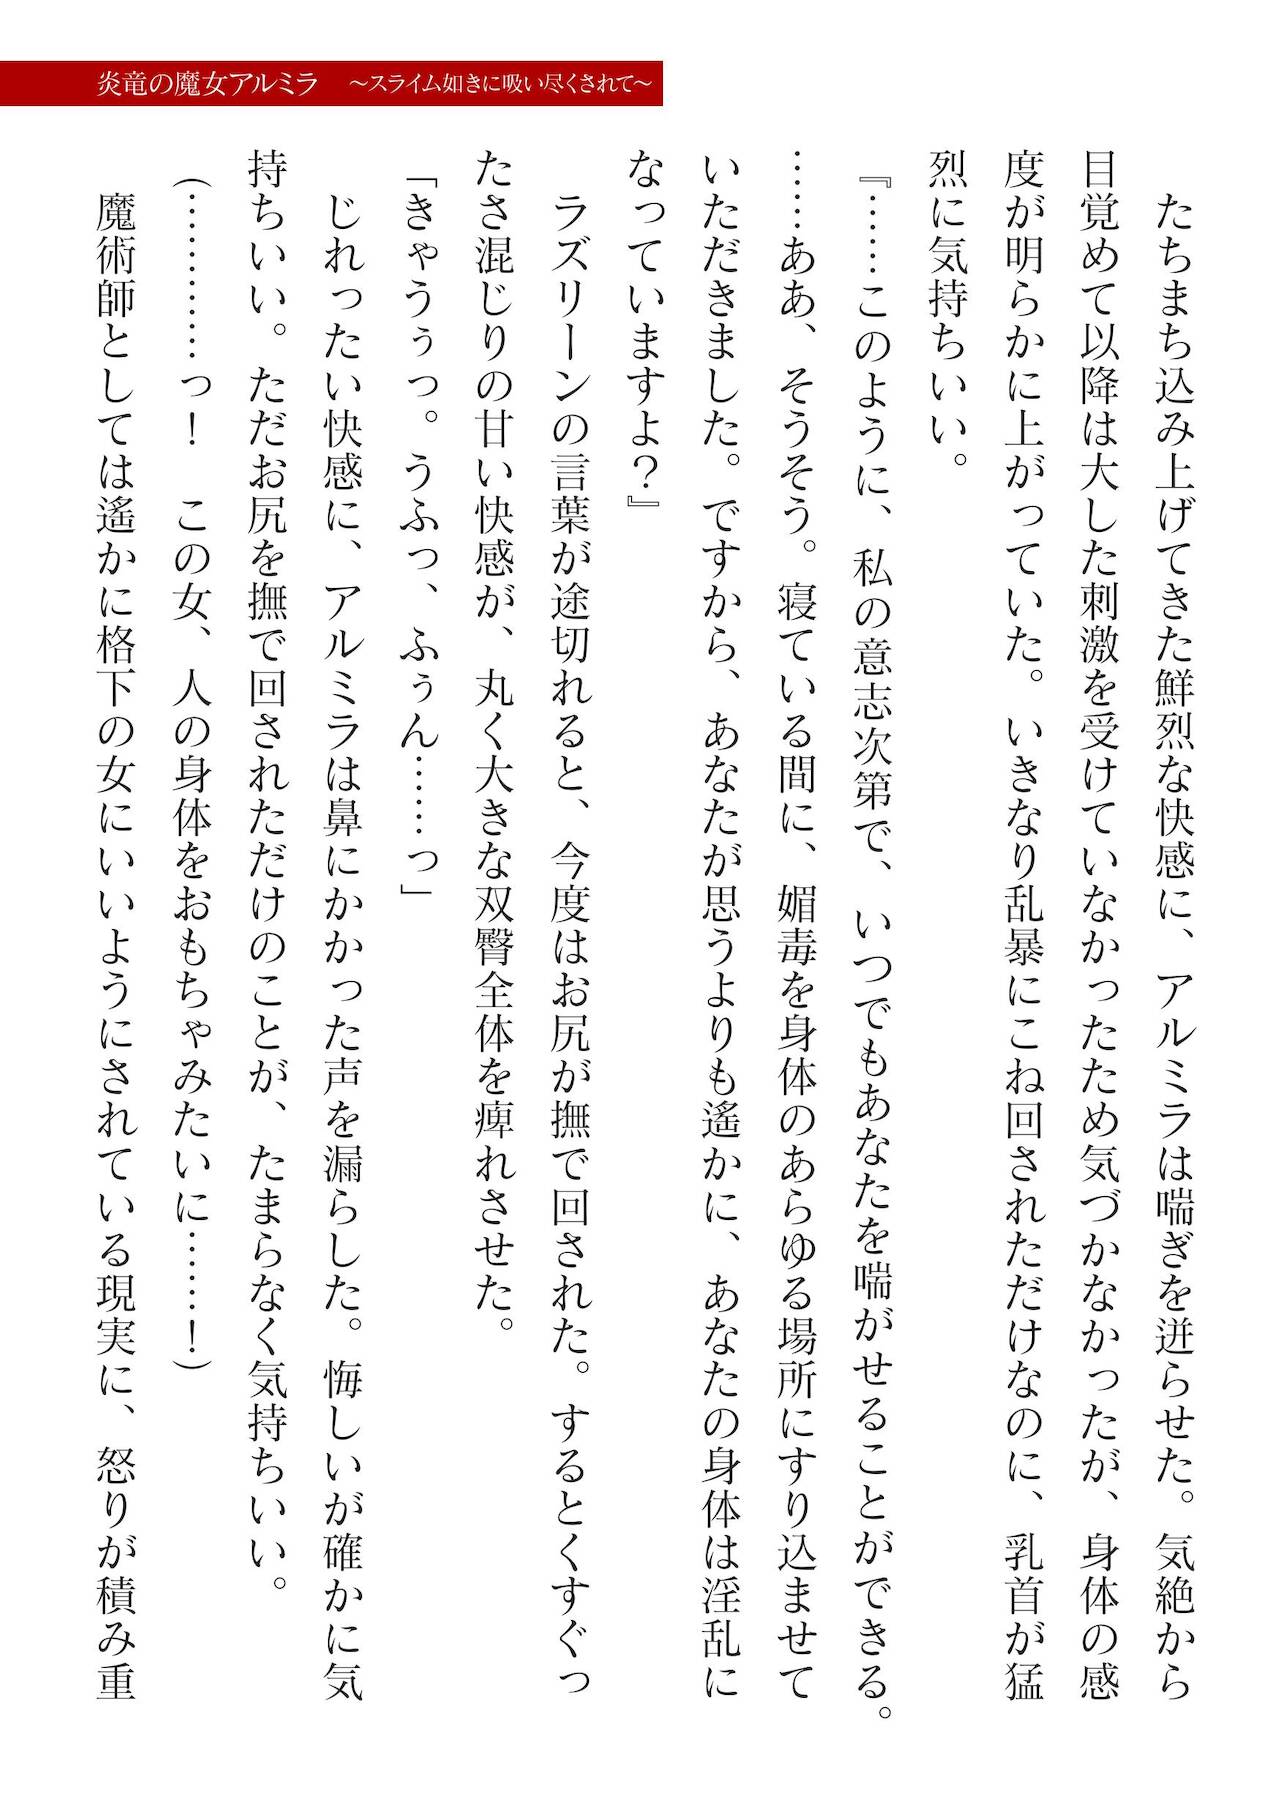 炎竜の魔女アルミラ　～スライム如きに吸い尽くされて～
　たちまち込み上げてきた鮮烈な快感に、アルミラは喘ぎを迸らせた。気絶から
目覚めて以降は大した刺激を受けていなかったため気づかなかったが、身体の感
度が明らかに上がっていた。いきなり乱暴にこね回されただけなのに、乳首が猛
烈に気持ちいい。
『……このように、私の意志次第で、いつでもあなたを喘がせることができる。
……ああ、そうそう。寝ている間に、媚毒を身体のあらゆる場所にすり込ませて
いただきました。ですから、あなたが思うよりも遙かに、あなたの身体は淫乱に
なっていますよ？』
　ラズリーンの言葉が途切れると、今度はお尻が撫で回された。するとくすぐっ
たさ混じりの甘い快感が、丸く大きな双臀全体を痺れさせた。
「きゃうぅっ。うふっ、ふぅん……っ」
　じれったい快感に、アルミラは鼻にかかった声を漏らした。悔しいが確かに気
持ちいい。ただお尻を撫で回されただけのことが、たまらなく気持ちいい。
（…………っ！　この女、人の身体をおもちゃみたいに……！）
　魔術師としては遙かに格下の女にいいようにされている現実に、怒りが積み重